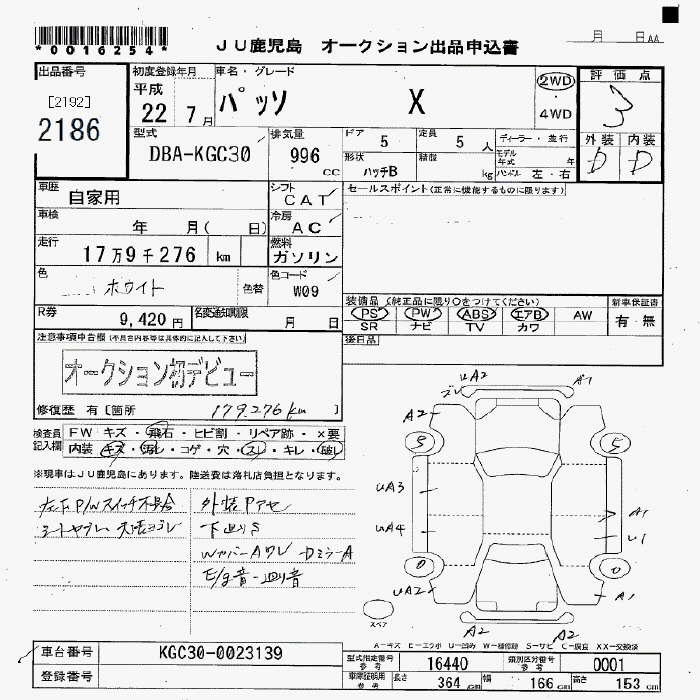 *0016254*
JU鹿児島 オークション出品申込書
月 日 AA
出品番号
[2192]
2186
初度登録年月
平成
22 7月
車名・グレード
パッソ X
2WD
4WD
評価点
3
外装 内装
D D
型式
DBA-KGC30
排気量
996 CC
ドア 5
定員 5 人
形状 ハッチB
積載 kg
ディーラー・並行
モデル年式 年
ハンドル 左・右
車歴 自家用
シフト CAT
車検 年 月( 日)
冷房 AC
走行 17万9千276 km
燃料 ガソリン
色 ホワイト 色替
色コード W09
R券 9,420円
名変通知期限 月 日
セールスポイント(正常に機能するものに限ります)
装備品 (純正品に限り○をつけてください)
新車保証書
PS PW ABS エアB AW
有・無
SR ナビ TV カワ
後日品
注意事項申告欄(不具合内容等は具体的に記入して下さい)
オークション初デビュー
修復歴 有[箇所
179.276km
検査員記入欄
FW キズ・飛石・ヒビ割・リペア跡・×要
内装 キズ・汚レ・コゲ・穴・スレ・キレ・破レ
※現車はJU鹿児島にあります。陸送費は落札店負担となります。
左下P/Wスイッチ不具合
シートヤブレ
外装Pアセ
下廻りS
WカバーAワレ DミラーA
E/g音・廻り音
UA2 A1
A2
5 5
UA3
UA4
A1
U1
0 0
UA2 A1
A2 A2
スペア
A-キズ E-エクボ U-凹み W-補修跡 S-サビ C-腐食 XX-交換済
車台番号 KGC30-0023139
登録番号
型式指定番号 参考 16440
類別区分番号 参考 0001
車庫証明用 参考
長さ 364 cm
幅 166 cm
高さ 153 cm